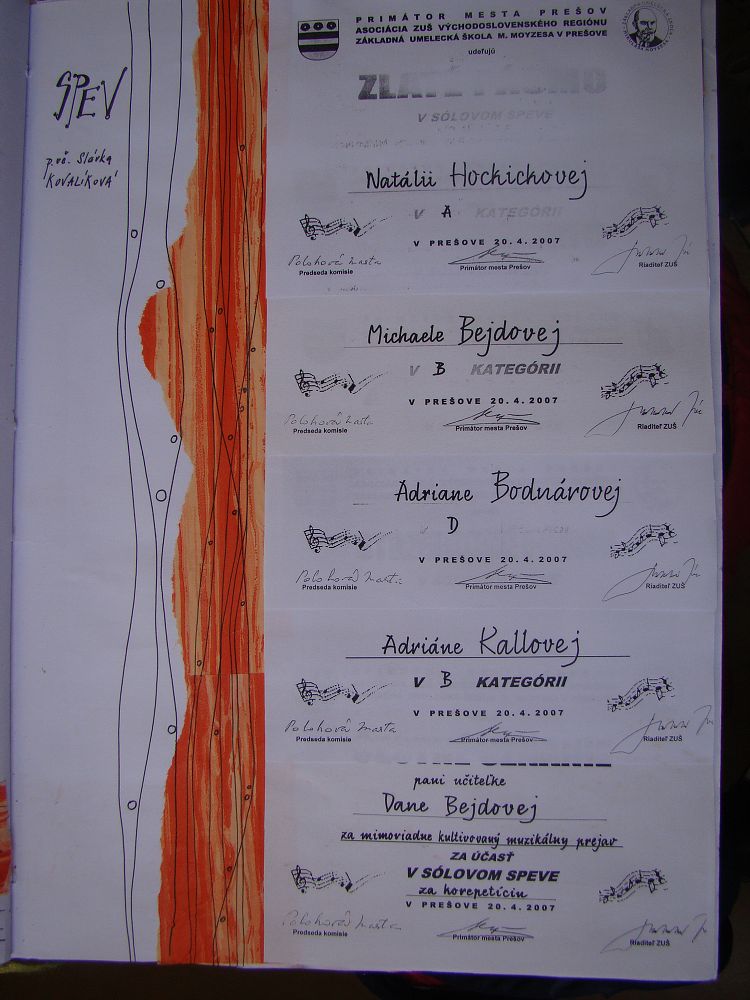 SPEV
p. uč. Slávka
KOVALÍKOVÁ
PRIMÁTOR MESTA PREŠOV
ASOCIÁCIA ZUŠ VÝCHODOSLOVENSKÉHO REGIÓNU
ZÁKLADNÁ UMELECKÁ ŠKOLA M. MOYZESA V PREŠOVE
udeľujú
ZLATÉ PÁSMO
V SÓLOVOM SPEVE
Natálii Hockichovej
V A KATEGÓRII
V PREŠOVE 20.4.2007
Predseda komisie Primátor mesta Prešov Riaditeľ ZUŠ
Michaele Bejdovej
V B KATEGÓRII
V PREŠOVE 20.4.2007
Predseda komisie Primátor mesta Prešov Riaditeľ ZUŠ
Adriane Bodnárovej
V D
V PREŠOVE 20.4.2007
Predseda komisie Primátor mesta Prešov Riaditeľ ZUŠ
Adriáne Kallovej
V B KATEGÓRII
V PREŠOVE 20.4.2007
Predseda komisie Primátor mesta Prešov Riaditeľ ZUŠ
pani učiteľke
Dane Bejdovej
za mimoriadne kultivovaný muzikálny prejav
ZA ÚČASŤ
V SÓLOVOM SPEVE
za korepetíciu
V PREŠOVE 20.4.2007
Predseda komisie Primátor mesta Prešov Riaditeľ ZUŠ